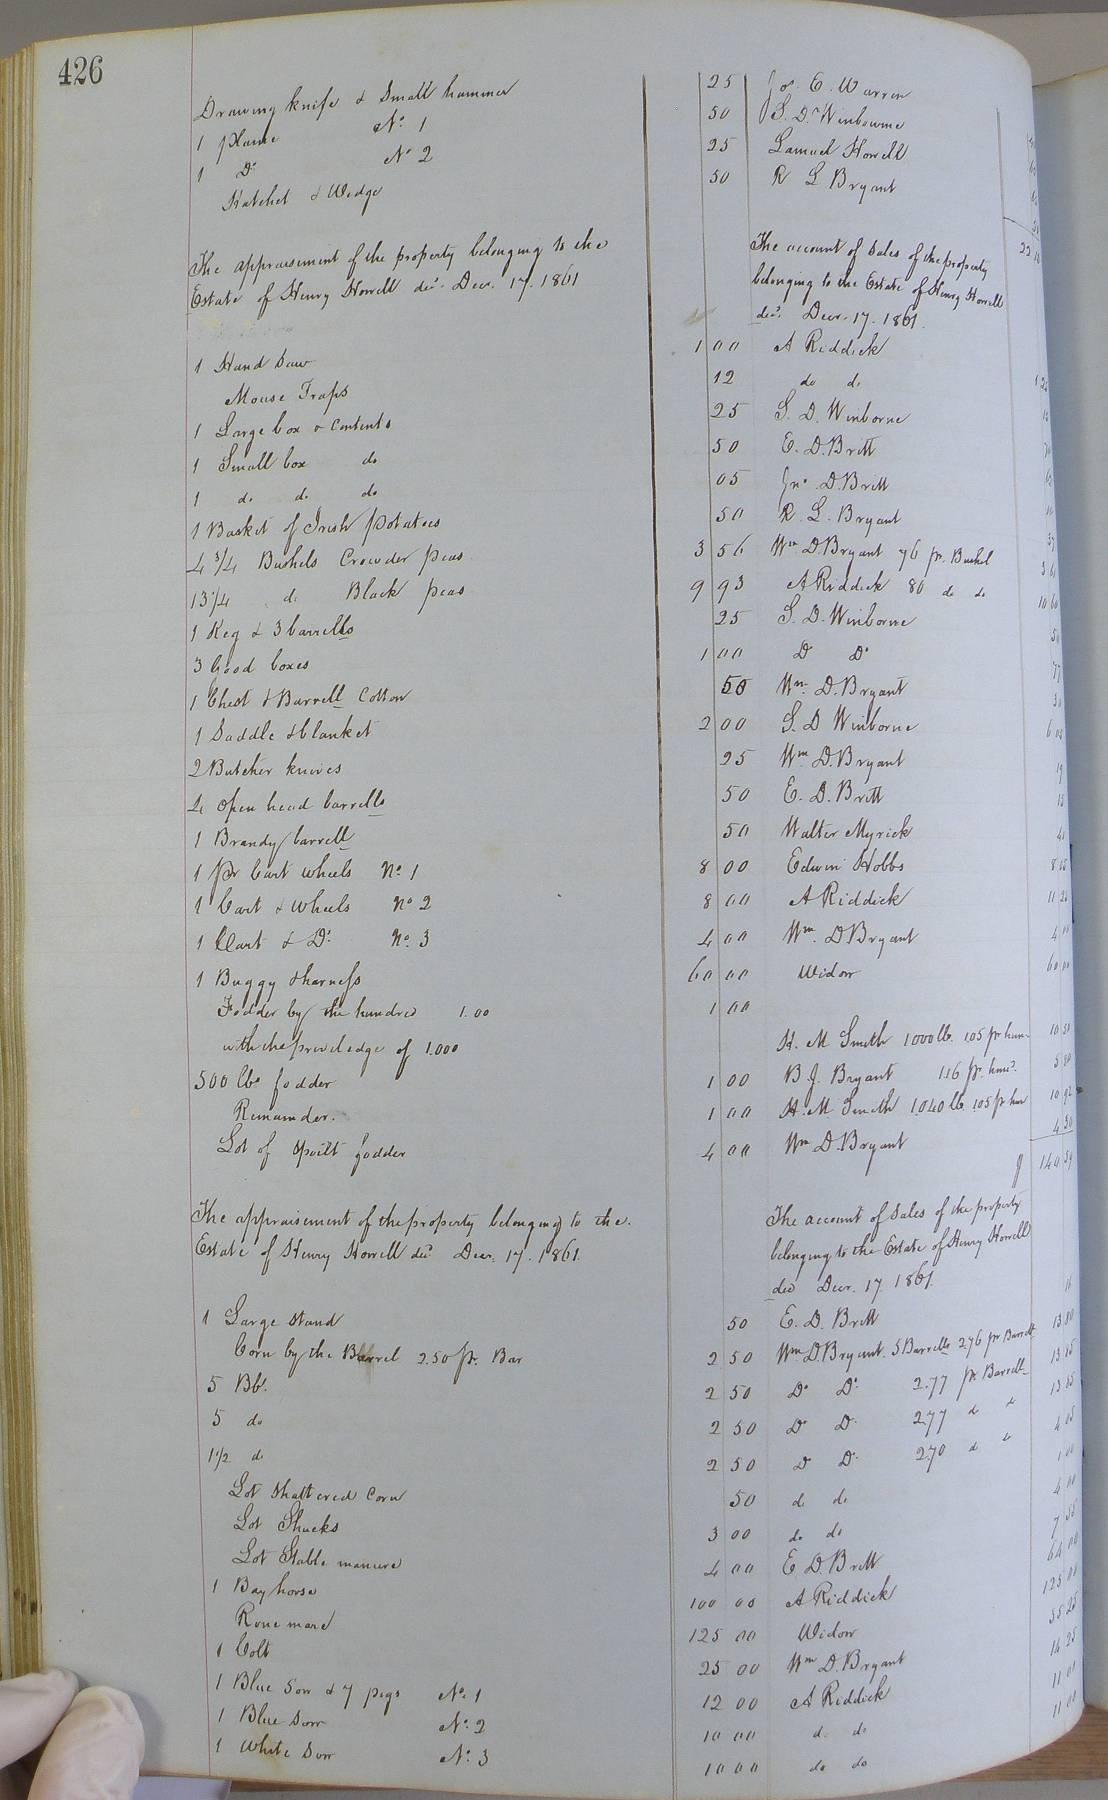 426
Drawing knife & Small hammer 25 Jos. E. Warren
1 plane No. 1 50 S. D. Winbourne
1 Do No 2 25 Lamuel Howell
Hatchet & Wedge 50 R L Bryant
The appraisement of the property belonging to the
Estate of Henry Howell decd. Decr. 17. 1861
The account of Sales of the property
belonging to the Estate of Henry Howell
decd. Decr. 17. 1861.
1 Hand Saw 1 00 A Riddick
Mouse Traps 12 do do
1 Large box & Contents 25 S. D. Winborne
1 Small box do 50 E. D. Britt
1 do do do 05 Jno. D. Britt
1 Basket of Irish potatoes 50 R. L. Bryant
4 3/4 Bushels Crowder peas 3 56 Wm D. Bryant 76 pr. Bushel
13 1/4 do Black peas 9 93 A Riddick 80 do do 10 60
1 Keg & 3 barrells 25 S. D. Winborne
3 Good boxes 1 00 Do Do
1 Chest & Barrell Cotton 50 Wm. D. Bryant
1 Saddle & blanket 2 00 S. D Winborne
2 Butcher knives 25 Wm D. Bryant
4 open head barrells 50 E. D. Britt
1 Brandy barrell 50 Walter Myrick
1 pr Cart wheels No. 1 8 00 Edwin Hobbs
1 Cart & wheels No 2 8 00 A Riddick
1 Cart & Do. No. 3 4 00 Wm. D Bryant
1 Buggy & harness 60 00 Widow 60 00
Fodder by the hundred 1.00 1 00
with the priviledge of 1.000 H. M Smith 1000 lb. 1.05 pr hun 10 50
500 lbs fodder 1 00 B. J. Bryant 1.16 pr. hund. 5 80
Remainder. 1 00 H. M. Smith 1.040 lb 1.05 pr hun 10 92
Lot of spoilt fodder 4 00 Wm D. Bryant 4 50
140 59
The appraisement of the property belonging to the.
Estate of Henry Howell decd Decr. 17. 1861.
The account of Sales of the property
belonging to the Estate of Henry Howell
decd Decr. 17. 1861.
1 Large stand 50 E. D. Britt
Corn by the Barrel 2.50 pr. Bar 2 50 Wm D Bryant. 5 Barrells 2.76 pr Barrell 13 80
5 Bbl. 2 50 Do Do. 2.77 pr Barrell 13 85
5 do 2 50 Do Do 2.77 do do 13 85
1 1/2 do 2 50 Do Do. 2.70 do do 4 05
Lot shattered Corn 50 do do 1 00
Lot Shucks 3 00 do do 4 00
Lot Stable manure 4 00 E D. Britt
1 Bay horse 100 00 A Riddick
Rone mare 125 00 Widow 125 00
1 Colt 25 00 Wm D. Bryant 55 25
1 Blue Sow & 7 pigs No. 1 12 00 A Riddick 14 25
1 Blue Sow No. 2 10 00 do do 11 00
1 White Sow No. 3 10 00 do do 11 00